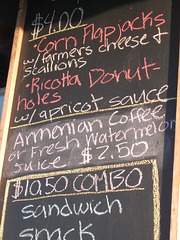 $4.00
• Corn Flapjacks
w/farmers cheese &
scallions
• Ricotta Donut-
holes
w/ apricot sauce
Armenian Coffee
or Fresh Watermelon
Juice $2.50
$10.50 COMBO
sandwich
snack